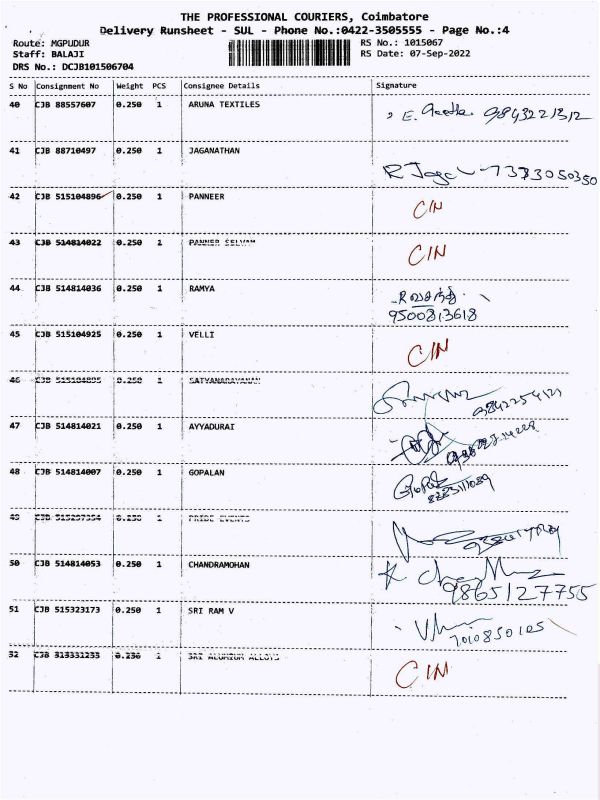 THE PROFESSIONAL COURIERS, Coimbatore
Delivery Runsheet - SUL - Phone No.:0422-3505555 - Page No.:4
Route: MGPUDUR RS No.: 1015067
Staff: BALAJI RS Date: 07-Sep-2022
DRS No.: DCJB101506704
S No Consignment No Weight PCS Consignee Details Signature
40 CJB 88557607 0.250 1 ARUNA TEXTILES
E. 9843221312
41 CJB 88710497 0.250 1 JAGANATHAN
7373050350
42 CJB 515104896 0.250 1 PANNEER CIN
43 CJB 514814022 0.250 1 PANNER SELVAM CIN
44 CJB 514814036 0.250 1 RAMYA
9500813618
45 CJB 515104925 0.250 1 VELLI CIN
46 CJB 0.250 1 SATYANARAYANAN
47 CJB 514814021 0.250 1 AYYADURAI
48 CJB 514814007 0.250 1 GOPALAN
49 CJB 0.250 1 PRIDE EVENTS
50 CJB 514814053 0.250 1 CHANDRAMOHAN
9865127755
51 CJB 515323173 0.250 1 SRI RAM V
52 CJB 1 SRI ALUMIUM ALLOYS CIN